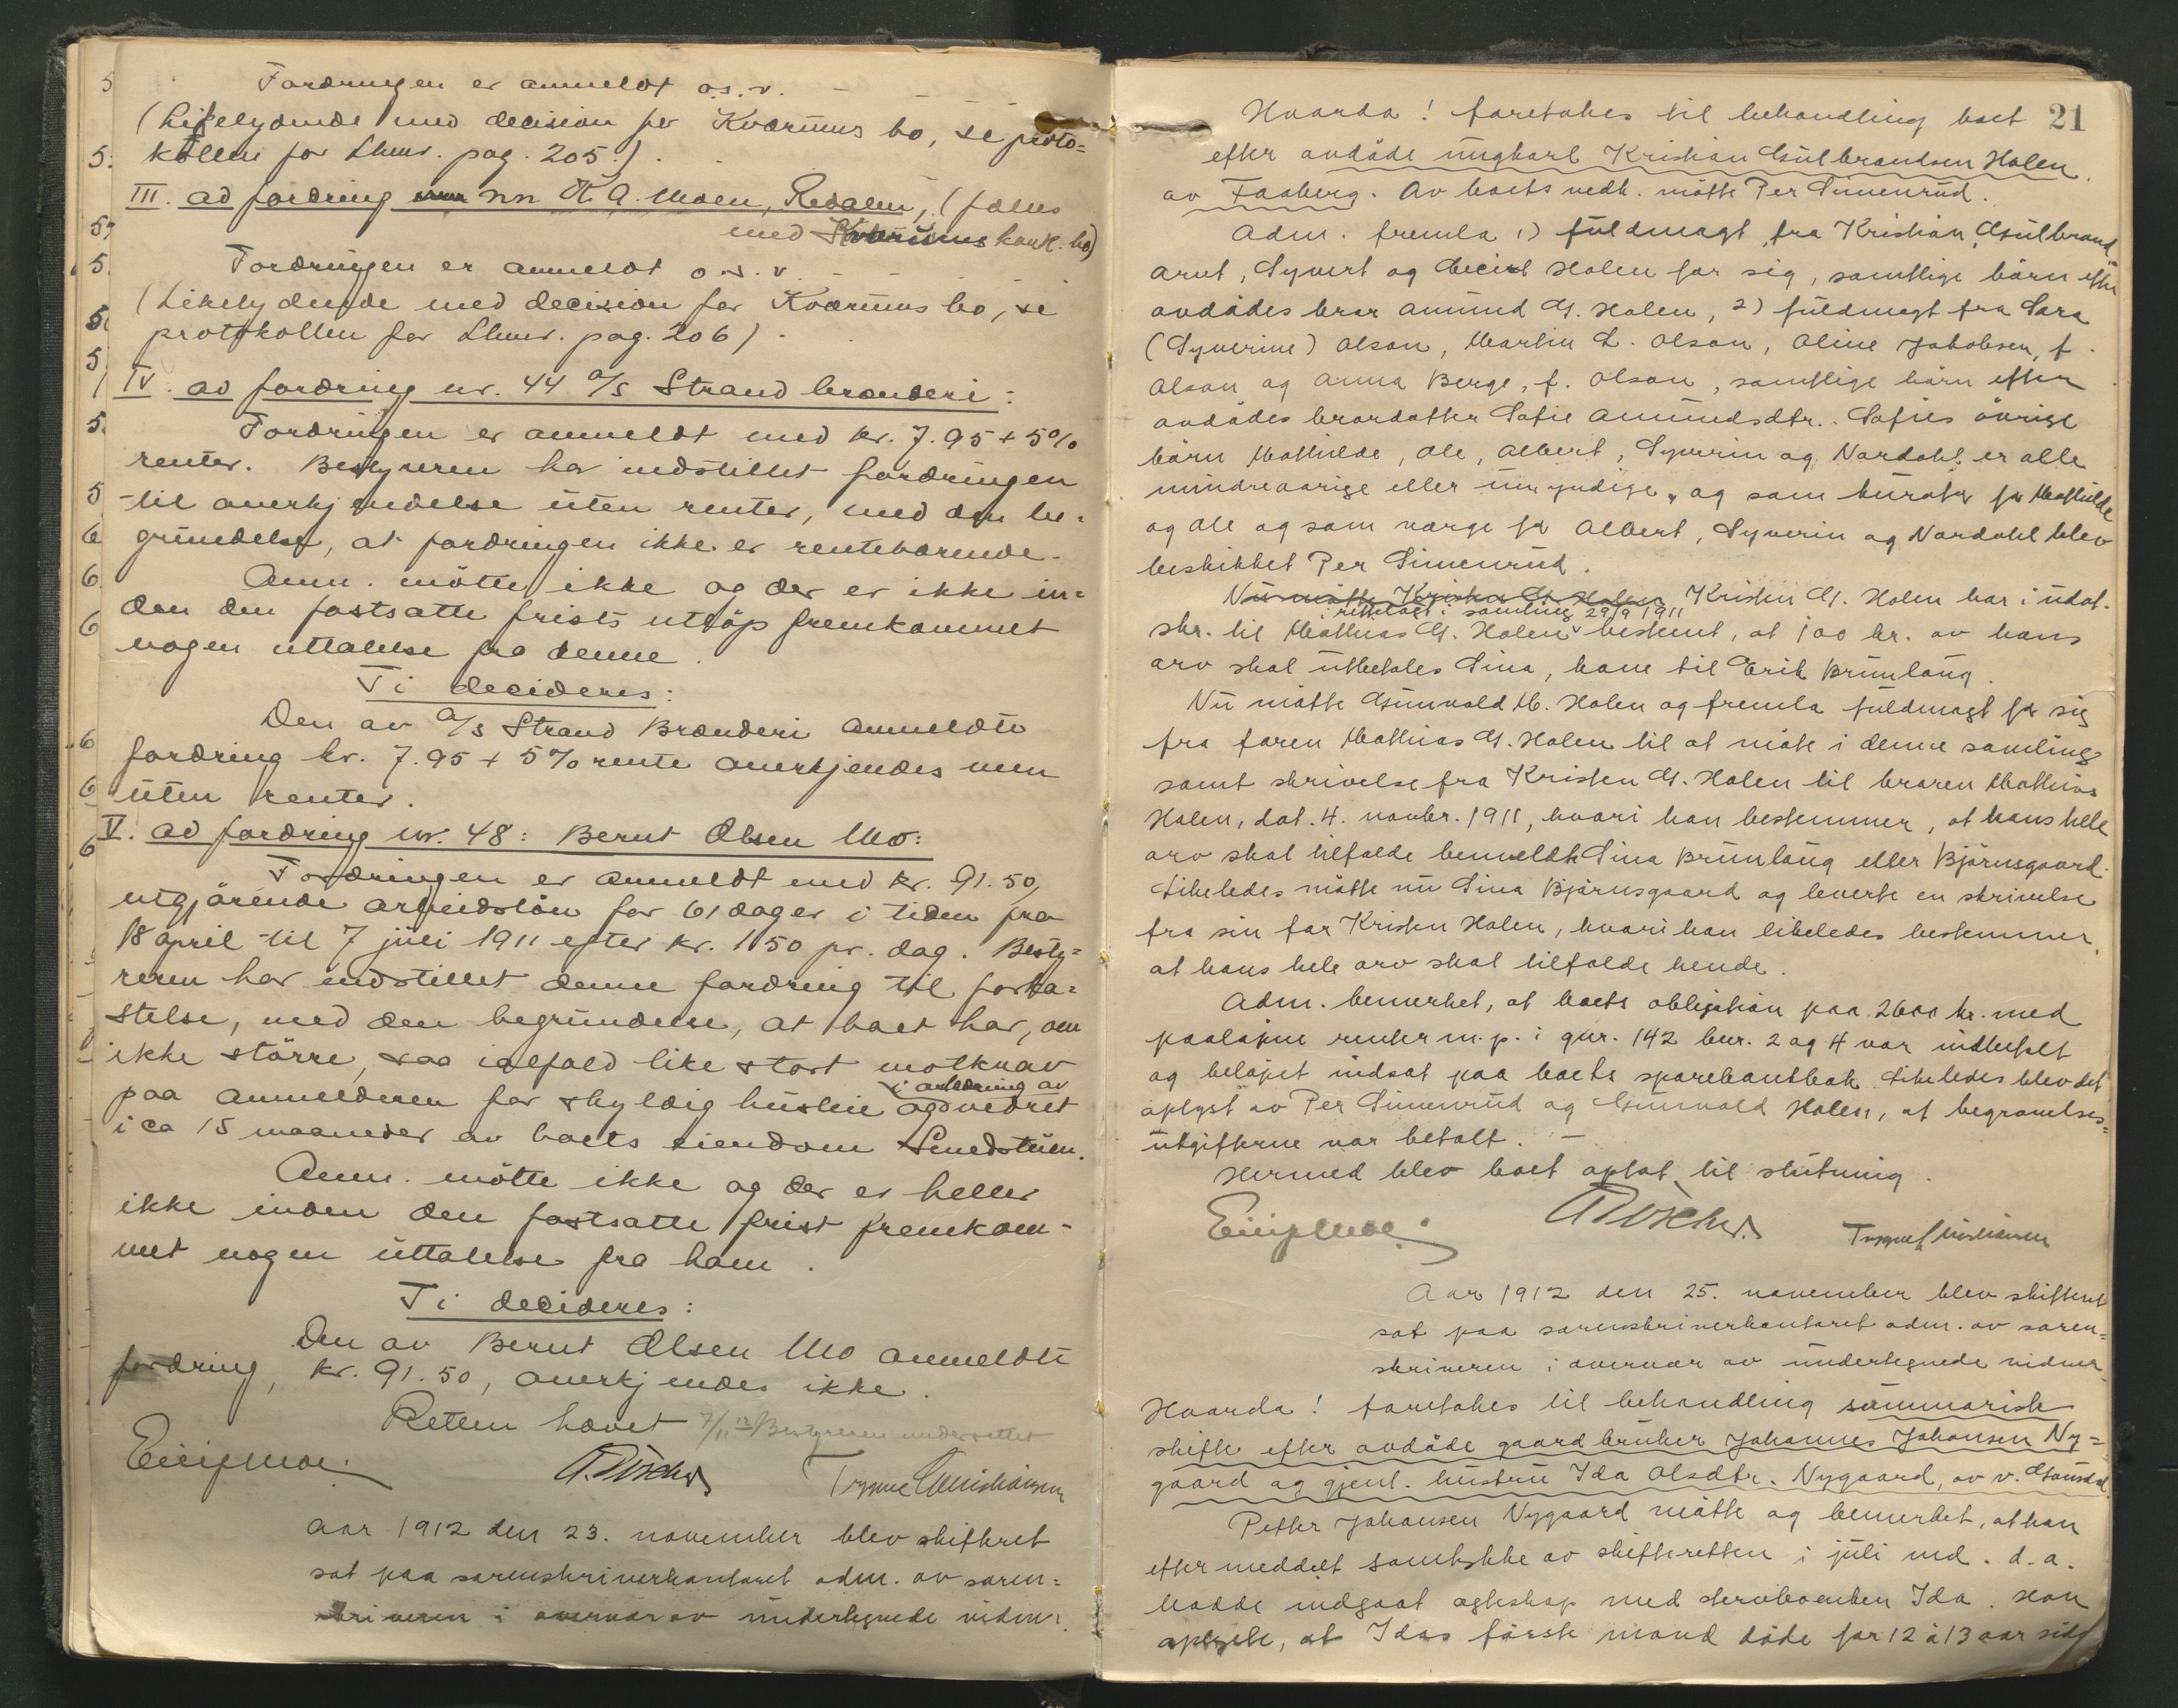 Fordringen er anmeldt o.s.v.
(Likelydende med decision for Kværnus bo, se proto=
kollen for Lhmr. pag. 205.).
III. ad fordring nr. K. A. Moen, Redalen, (fælles
med Kværnus konk. bo)
Fordringen er anmeldt o.s.v.
(Likelydende med decision for Kværnus bo, se
protokollen for Lhmr. pag. 206).
IV. ad fordring nr. 44 A/S Strand brænderi:
Fordringen er anmeldt med kr. 7.95 + 5%
renter. Bestyreren har indstillet fordringen
til anerkjendelse uten renter, med den be=
grundelse, at fordringen ikke er rentebærende.
Anm. mötte ikke og der er ikke in=
den den fastsatte frists utløp fremkommet
nogen uttalelse fra denne.
Ti decideres:
Den av A/S Strand Brænderi anmeldte
fordring kr. 7.95 + 5% rente anerkjendes men
uten renter.
V. ad fordring nr. 48: Bernt Olsen Mo:
Fordringen er anmeldt med kr. 91.50,
utgjörende arbeidslön for 61 dager i tiden fra
18 april til 7 juli 1911 efter kr. 1.50 pr. dag. Besty=
reren har indstillet denne fordring til forka=
stelse, med den begrundelse, at boet har, om
ikke större, saa ialfald like stort motkrav
paa anmelderen for skyldig husleie i anledning av
i ca 15 maaneder av boets eiendom Smedstuen.
Anm. mötte ikke og der er heller
ikke inden den fastsatte frist fremkom=
met nogen uttalelse fra ham.
Ti decideres:
Den av Bernt Olsen Mo anmeldte
fordring, kr. 91.50, anerkjendes ikke.
Retten hævet 7/11 12 Bestyreren underrettet
Trygve Christiansen
Aar 1912 den 23. november blev skifteret
sat paa sorenskriverkontoret adm. av soren=
skriveren i overvær av undertegnede vidner.
21
Hvorda! foretokes til behandling boet
efter avdöde ungkarl Kristian Gulbrandsen Holen
av Faaberg. Av boets vedk. mötte Per Simenrud.
Adm. fremla 1) fuldmagt fra Kristian, Gulbrand
Arnt, Syvert og Holen for sig, samtlige börn efter
avdödes bror Amund G. Holen, 2) fuldmagt fra Sara
(Syverine) Olson, Martin L. Olson, Oline Jakobsen, f.
Olson og Anna Berge, f. Olson, samtlige börn efter
avdödes brordatter Sofie Amundsdtr.. Sofies övrige
börn Mathilde, Ole, Albert, Syverin og Nordahl er alle
mindreaarige eller umyndige, og som kurator for Mathilde
og Ole og som værge for Albert, Syverin og Nordahl blev
beskikket Per Simenrud.
Nu mötte Kristen G. Holen Kristen G. Holen har i udat.
skr. til Mathias G. Holen fremlagt i samling 29/9 1911 bestemt, at 100 kr. av hans
arv skal utbetales Sina, kone til Erik Brunlaug.
Nu mötte Gunvald M. Holen og fremla fuldmagt for sig
fra faren Mathias G. Holen til at möte i denne samling
samt skrivelse fra Kristen G. Holen til broren Mathias
Holen, dat. 4. novbr. 1911, hvori han bestemmer, at hans hele
arv skal tilfalde bemeldte Sina Brunlaug eller Björnsgaard.
Likeledes mötte nu Sina Björnsgaard og leverte en skrivelse
fra sin far Kristen Holen, hvori han likeledes bestemmer,
at hans hele arv skal tilfalde hende.
Adm. bemerket, at boets obligation paa 2600 kr. med
paalöpne renter m. p. i gnr. 142 bnr. 2 og 4 var indbetalt
og belöpet indsat paa boets sparebankbok. Likeledes blev det
oplyst av Per Simenrud og Gunvald Holen, at begravelses=
utgifterne var betalt. –
Hermed blev boet optat til slutning.
Trygve Christiansen
Aar 1912 den 25. november blev skifteret
sat paa sorenskriverkontoret adm. av soren=
skriveren i overvær av undertegnede vidner.
Hvorda! foretokes til behandling summarisk
skifte efter avdöde gaardbruker Johannes Johansen Ny=
gaard og gjenl. hustru Ida Olsdtr. Nygaard, av v. Gausdal.
Petter Johansen Nygaard mötte og bemerket, at han
efter meddelt samtykke av skifteretten i juli md. d.a.
hadde indgaat egteskap med stervboenken Ida. Han
oplyste, at Idas förste mand döde for 12 à 13 aar sid